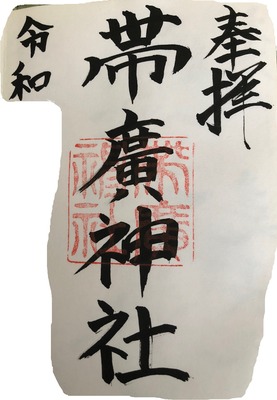 奉拝
帯廣神社
令和